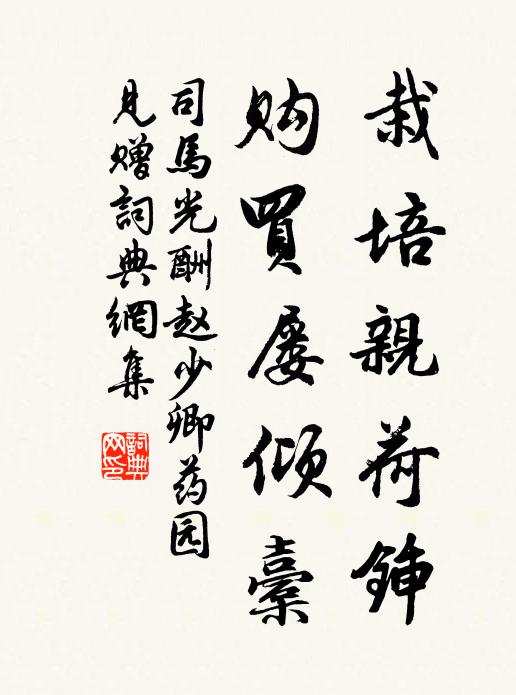 栽培親荷鍤
购買屡倾橐
司馬光酬赵少卿药园
見赠詞典網集
詞典网印